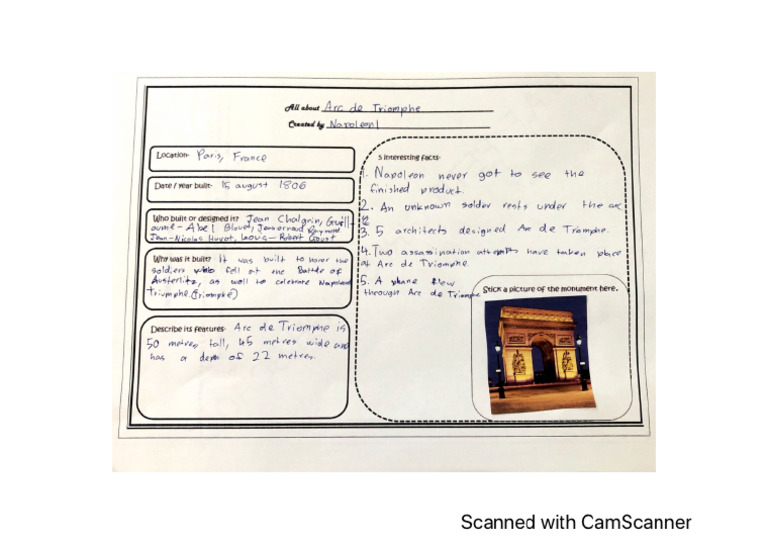 All about Arc de Triomphe
Created by Napoleon I
Location- Paris, France
Date / Year built- 15 august 1806
Who built or designed it? Jean Chalgrin, Guill-
aume-Abel Blouet,
Jean-Nicolas Huyot, Louis-Robert Goust
Why was it built? It was built to honor the
soldiers who fell at the Battle of
Austerlitz, as well to celebrate Napoleon
Triumphe (Triomphe)
Describe its features- Arc de Triomphe is
50 metres tall, 45 metres wide and
has a depth of 22 metres.
5 interesting facts-
1. Napoleon never got to see the
finished product.
2. An unknown solder rests under the arc
3. 5 architects designed Arc de Triomphe.
4. Two assassination attempts have taken place
at Arc de Triomphe
5. A plane flew
through Arc de Triomphe
Stick a picture of the monument here.
Scanned with CamScanner